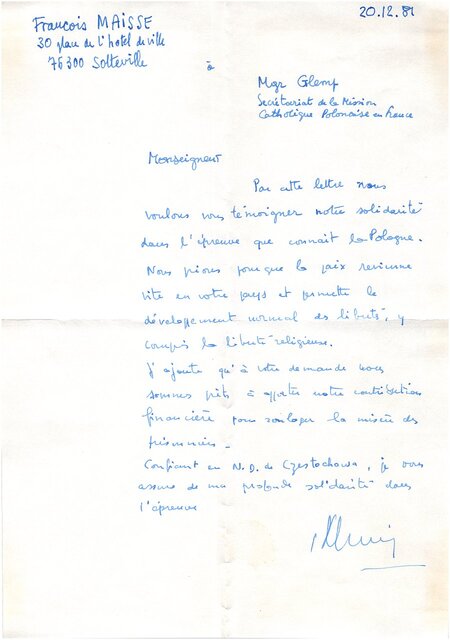 François MAISSE
20.12.81
30 place de l'hotel de ville
76300 Sotteville
à
Mgr Glemp
Secrétariat de la Mission
Catholique Polonaise en France
Monseigneur
Par cette lettre nous
voulons vous témoigner notre solidarité
dans l'épreuve que connait la Pologne.
Nous prions pour que la paix revienne
vite en votre pays et permette le
développement normal des libertés, y
compris la liberté religieuse.
J'ajoute qu'à votre demande nous
sommes prêts à apporter notre contribution
financière pour soulager la misère des
prisonniers.
Confiant en N.D. de Czestochowa, je vous
assure de ma profonde solidarité dans
l'épreuve